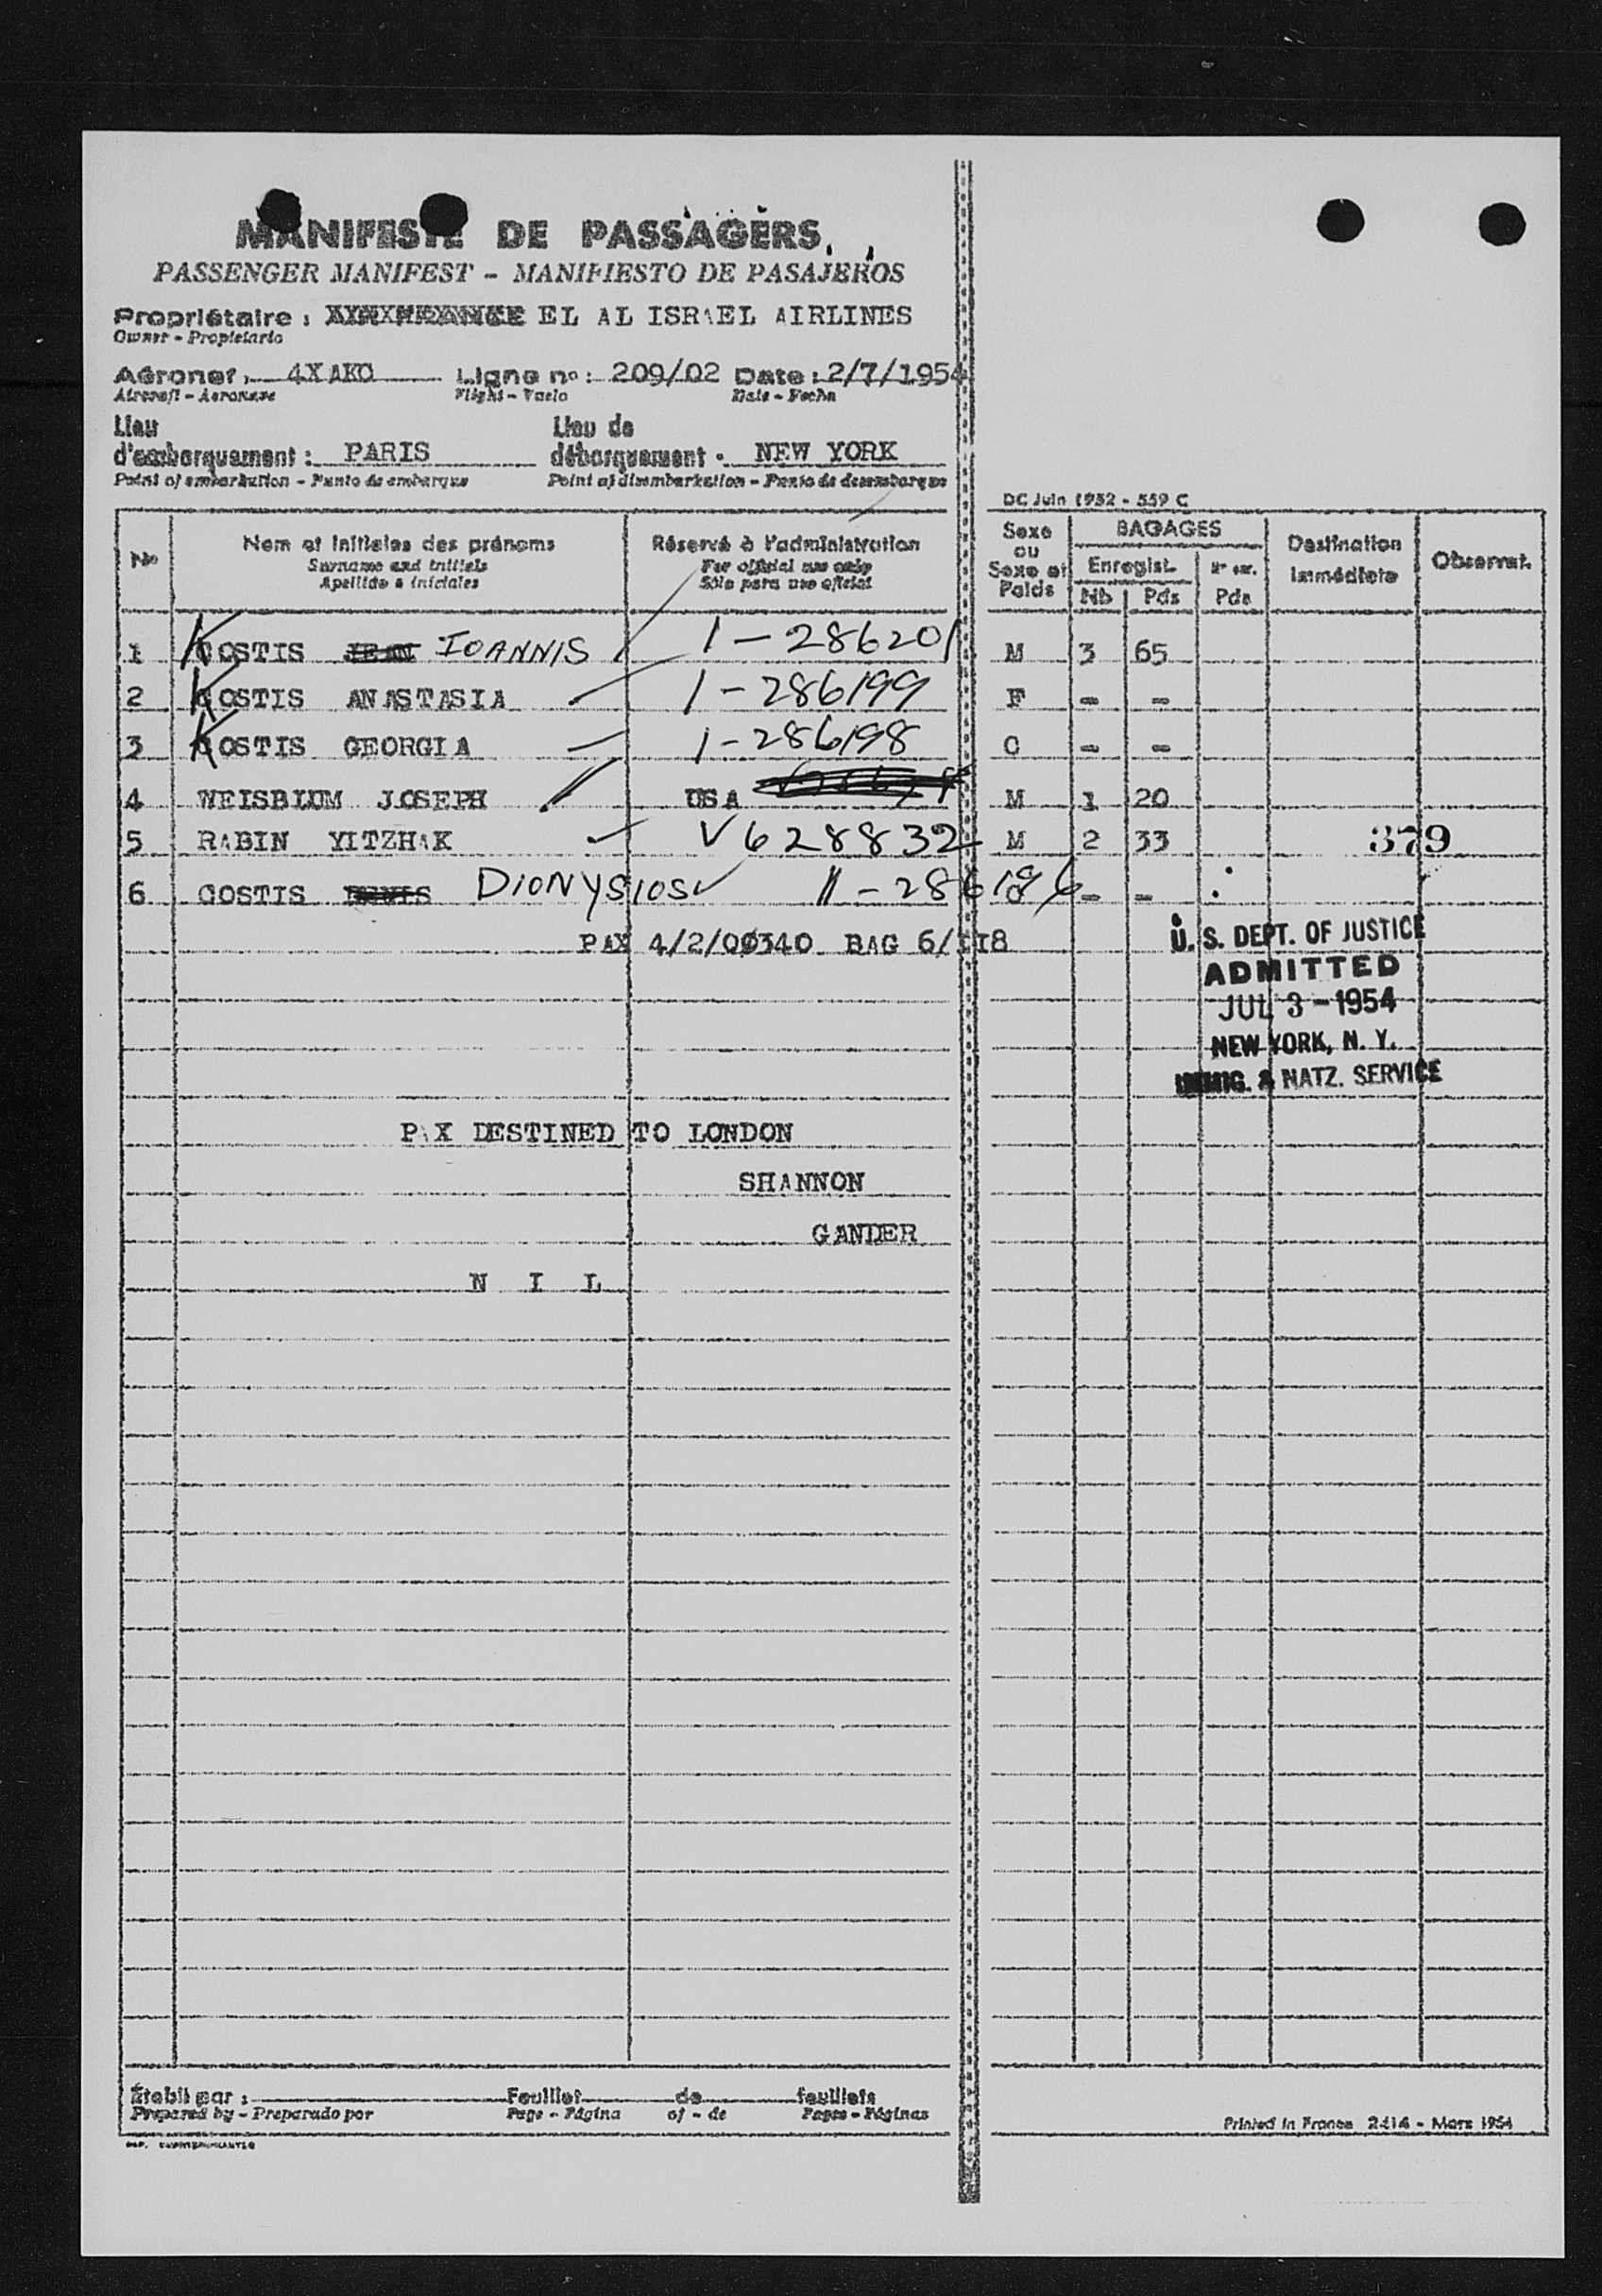 MANIFESTE DE PASSAGERS
PASSENGER MANIFEST - MANIFIESTO DE PASAJEROS
Propriétaire : EL AL ISRAEL AIRLINES
Owner - Propietario
Aéronef : 4XAKO Ligne no : 209/02 Date : 2/7/1954
Aircraft - Aeronave Flight - Vuelo Date - Fecha
Lieu d'embarquement : PARIS
Point of embarkation - Punto de embarque
Lieu de débarquement : NEW YORK
Point of disembarkation - Punto de desembarque
DC Juin 1952 - 559 C
No
Nom et initiales des prénoms
Surname and initials
Apellido e iniciales
Réservé à l'administration
For official use only
Sólo para uso oficial
Sexe ou Sexe et Poids
BAGAGES
Enregist.
Nb Pds
Pds
Destination immédiate
Observat.
1 KOSTIS JEAN IOANNIS 1-286201 M 3 65
2 KOSTIS ANASTASIA 1-286199 F - -
3 KOSTIS GEORGIA 1-286198 C - -
4 WEISBLUM JOSEPH USA M 1 20
5 RABIN YITZHAK V628832 M 2 33 379
6 COSTIS DENIS DIONYSIOS 1-286196 - -
PAX 4/2/00340 BAG 6/118
U. S. DEPT. OF JUSTICE
ADMITTED
JUL 3 - 1954
NEW YORK, N. Y.
IMMIG. & NATZ. SERVICE
PAX DESTINED TO LONDON
SHANNON
GANDER
N I L
Établi par : Feuillet de feuillets
Prepared by - Preparado por Page - Página of - de Pages - Páginas
Printed in France 2414 - Mars 1954